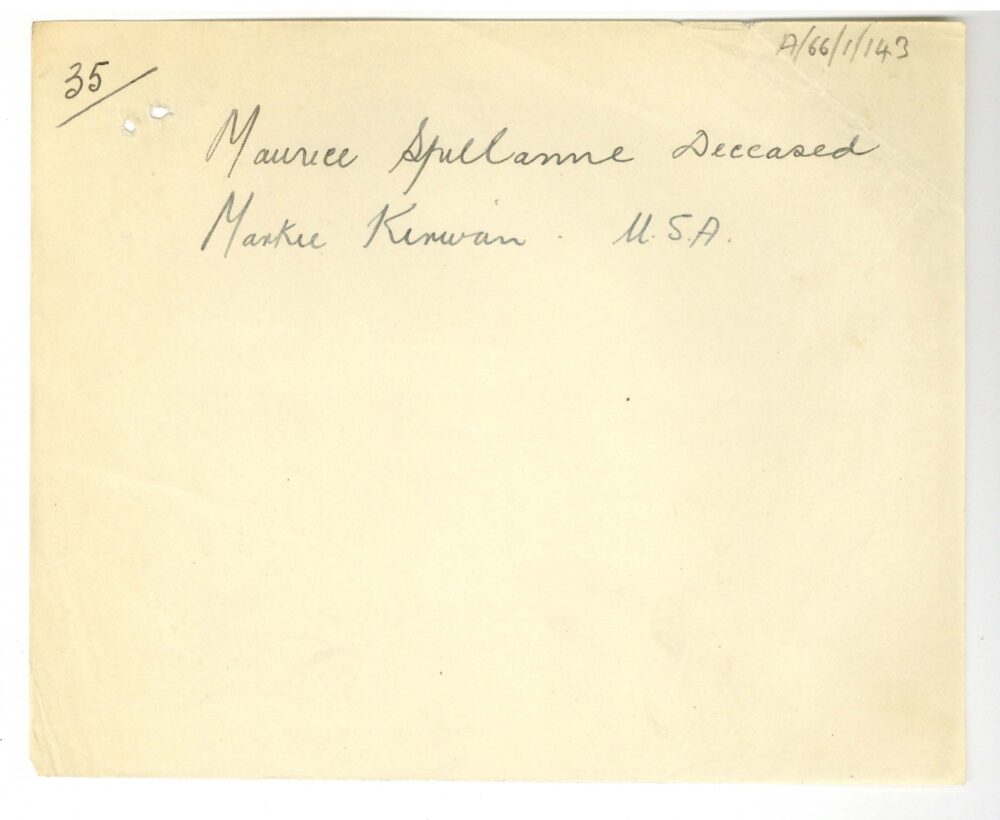 A/66/1/143
35/
Maurice Spullanne Deceased
Markie Kerwan . U.S.A.